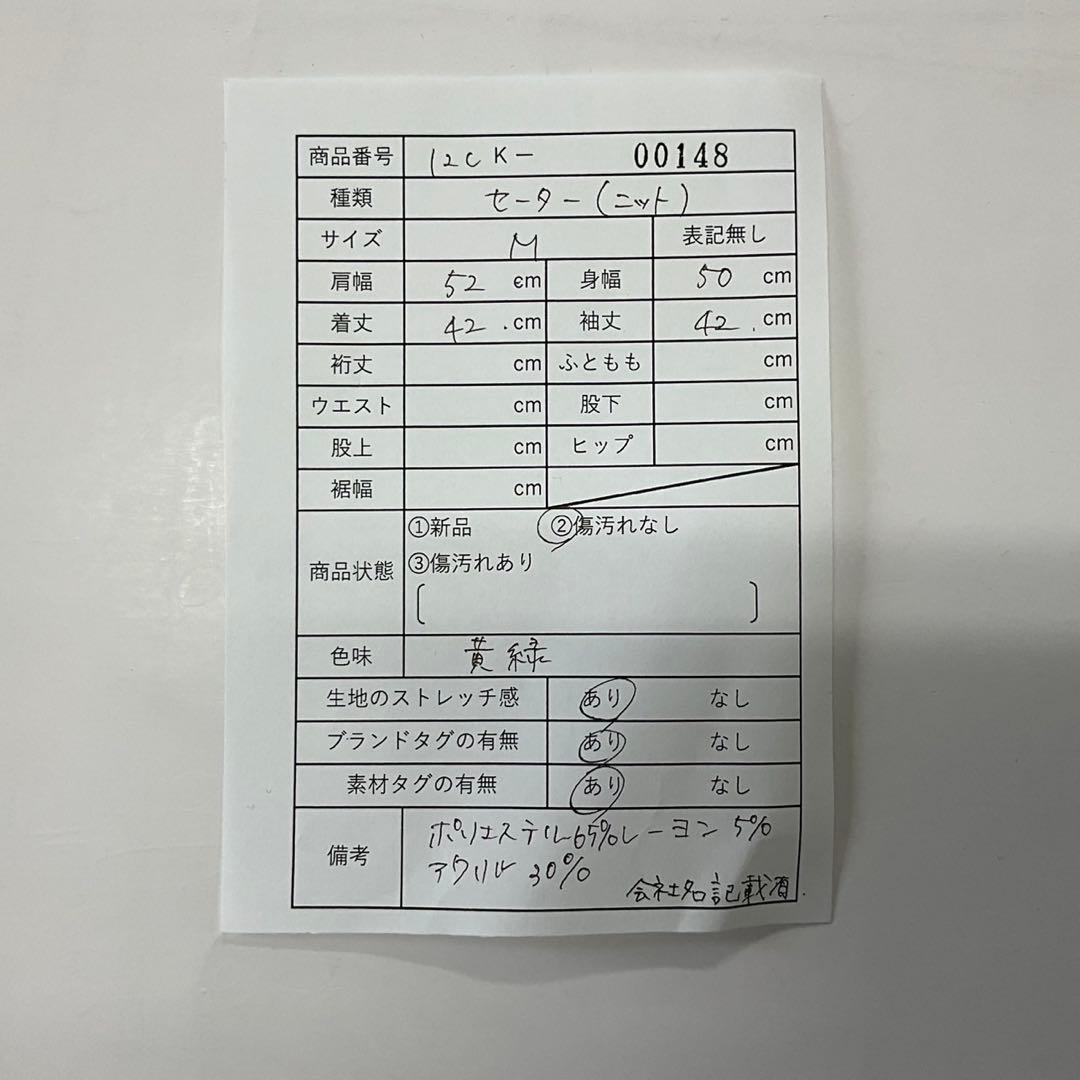 商品番号 12C K- 00148
種類 セーター(ニット)
サイズ M 表記無し
肩幅 52 cm 身幅 50 cm
着丈 42 .cm 袖丈 42 .cm
裄丈 cm ふともも cm
ウエスト cm 股下 cm
股上 cm ヒップ cm
裾幅 cm
①新品 ②傷汚れなし
商品状態 ③傷汚れあり
[ ]
色味 黄緑
生地のストレッチ感 あり なし
ブランドタグの有無 あり なし
素材タグの有無 あり なし
備考 ポリエステル65%レーヨン 5%
アクリル 30%
会社名記載